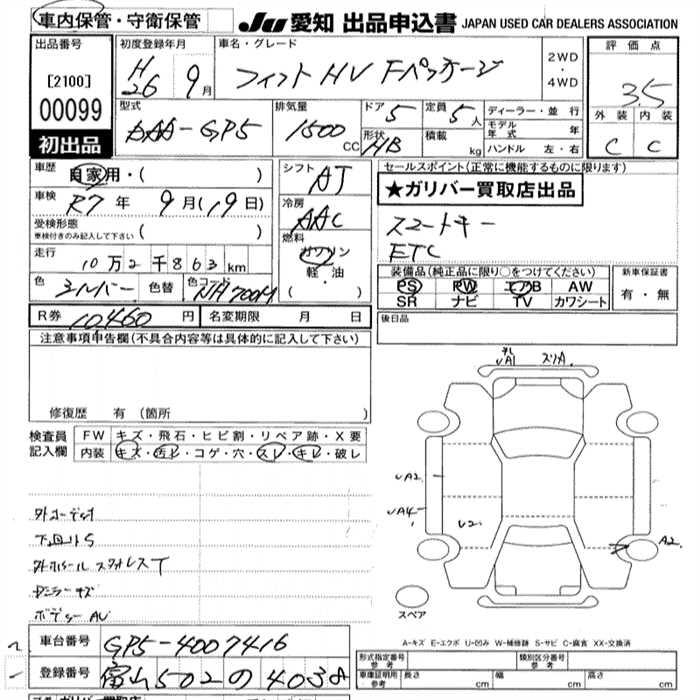 車内保管・守衛保管
JU 愛知 出品申込書 JAPAN USED CAR DEALERS ASSOCIATION
出品番号
[2100]
00099
初出品
初度登録年月
H26 9月
車名・グレード
フィット HV Fパッケージ
2WD
・
4WD
評価点
3.5
外装 内装
C C
型式
DAA-GP5
排気量
1500 CC
ドア 5
形状 HB
定員 5人
積載 kg
ディーラー・並行
モデル年式 年
ハンドル 左・右
車歴
自家用・( )
車検
R7年 9月(19日)
受検形態
車検付きのみ記入して下さい ( )
走行
10万2千863km
色 シルバー 色替 色コード NH700M
シフト
AT
冷房
AAC
燃料
ガソリン
軽・油
・( )
セールスポイント(正常に機能するものに限ります)
★ガリバー買取店出品
スマートキー
ETC
装備品(純正品に限り○をつけてください)
PS PW エアB AW
SR ナビ TV カワシート
新車保証書
有・無
R券 10460円 名変期限 月 日
後日品
注意事項申告欄(不具合内容等は具体的に記入して下さい)
修復歴 有 (箇所 )
検査員記入欄
FW キズ・飛石・ヒビ割・リペア跡・X要
内装 キズ・汚レ・コゲ・穴・スレ・キレ・破レ
外コーデット
下回りS
外ホイール スタッドレスT
ボディーAU
UA1
スリA
UA2
UA4
U2
A2
スペア
A-キズ E-エクボ U-凹み W-補修跡 S-サビ C-腐食 XX-交換済
車台番号 GP5-4007416
登録番号 富山502の4038
形式指定番号 参考
類別区分番号 参考
車庫証明用 参考 長さ cm 幅 cm 高さ cm